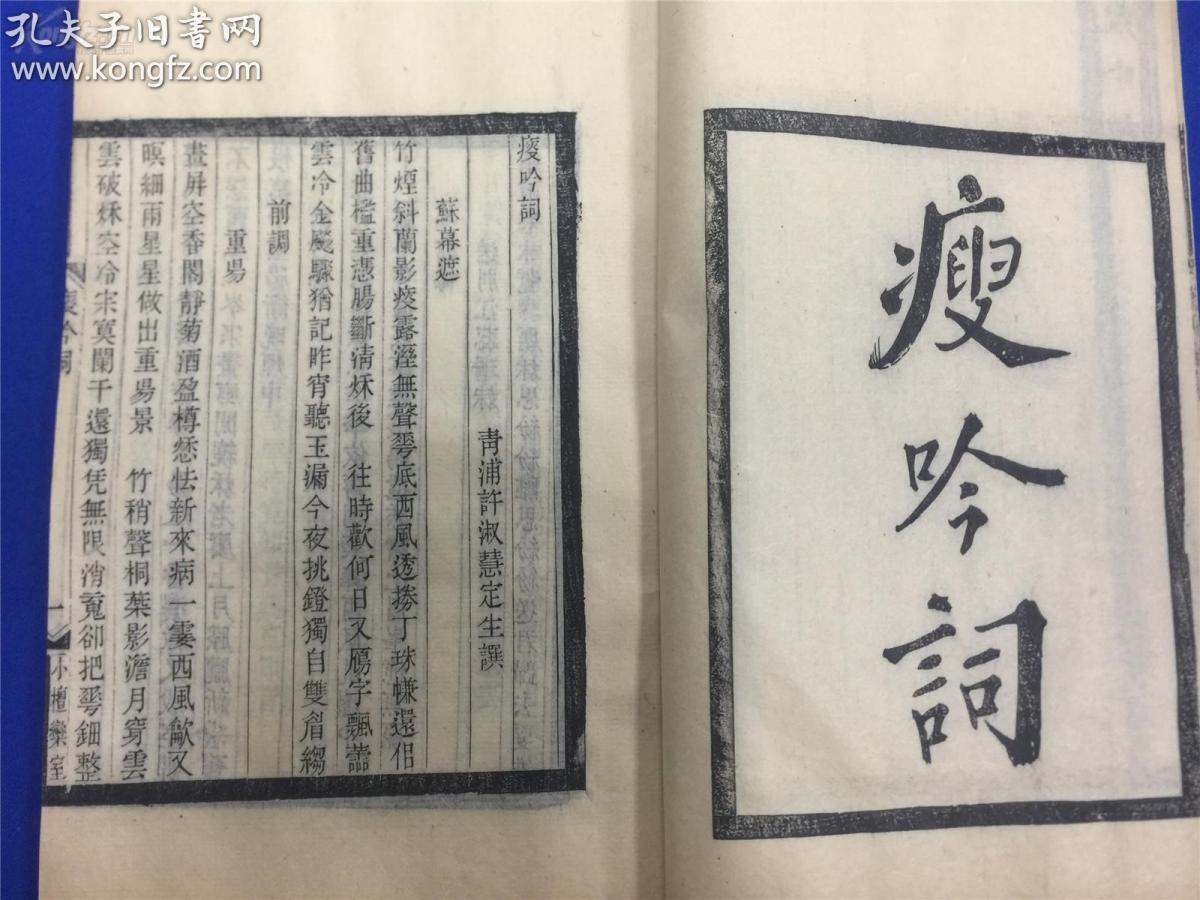 孔夫子旧书网
www.kongfz.com
瘦吟詞
瘦吟詞
青浦許淑慧定生譔
蘇幕遮
竹煙斜蘭影瘦露溼無聲蕚底西風透㨄丁珠㡘還佀
舊曲檻重憑腸斷淸秌後 往時歡何日又鴈字飄蕭
雲冷金飈驟猶記昨宵聽玉漏今夜挑鐙獨自雙眉縐
前調
重昜
畫屏空香閣靜菊酒盈樽㤿怯新來病一霎西風歛又
暝細雨星星做出重昜景 竹稍聲桐葉影澹月穿雲
雲破秌空冷宗寞闌干還獨凭無限消䰟卻把蕚鈿整
瘦吟詞
一
小檀欒室